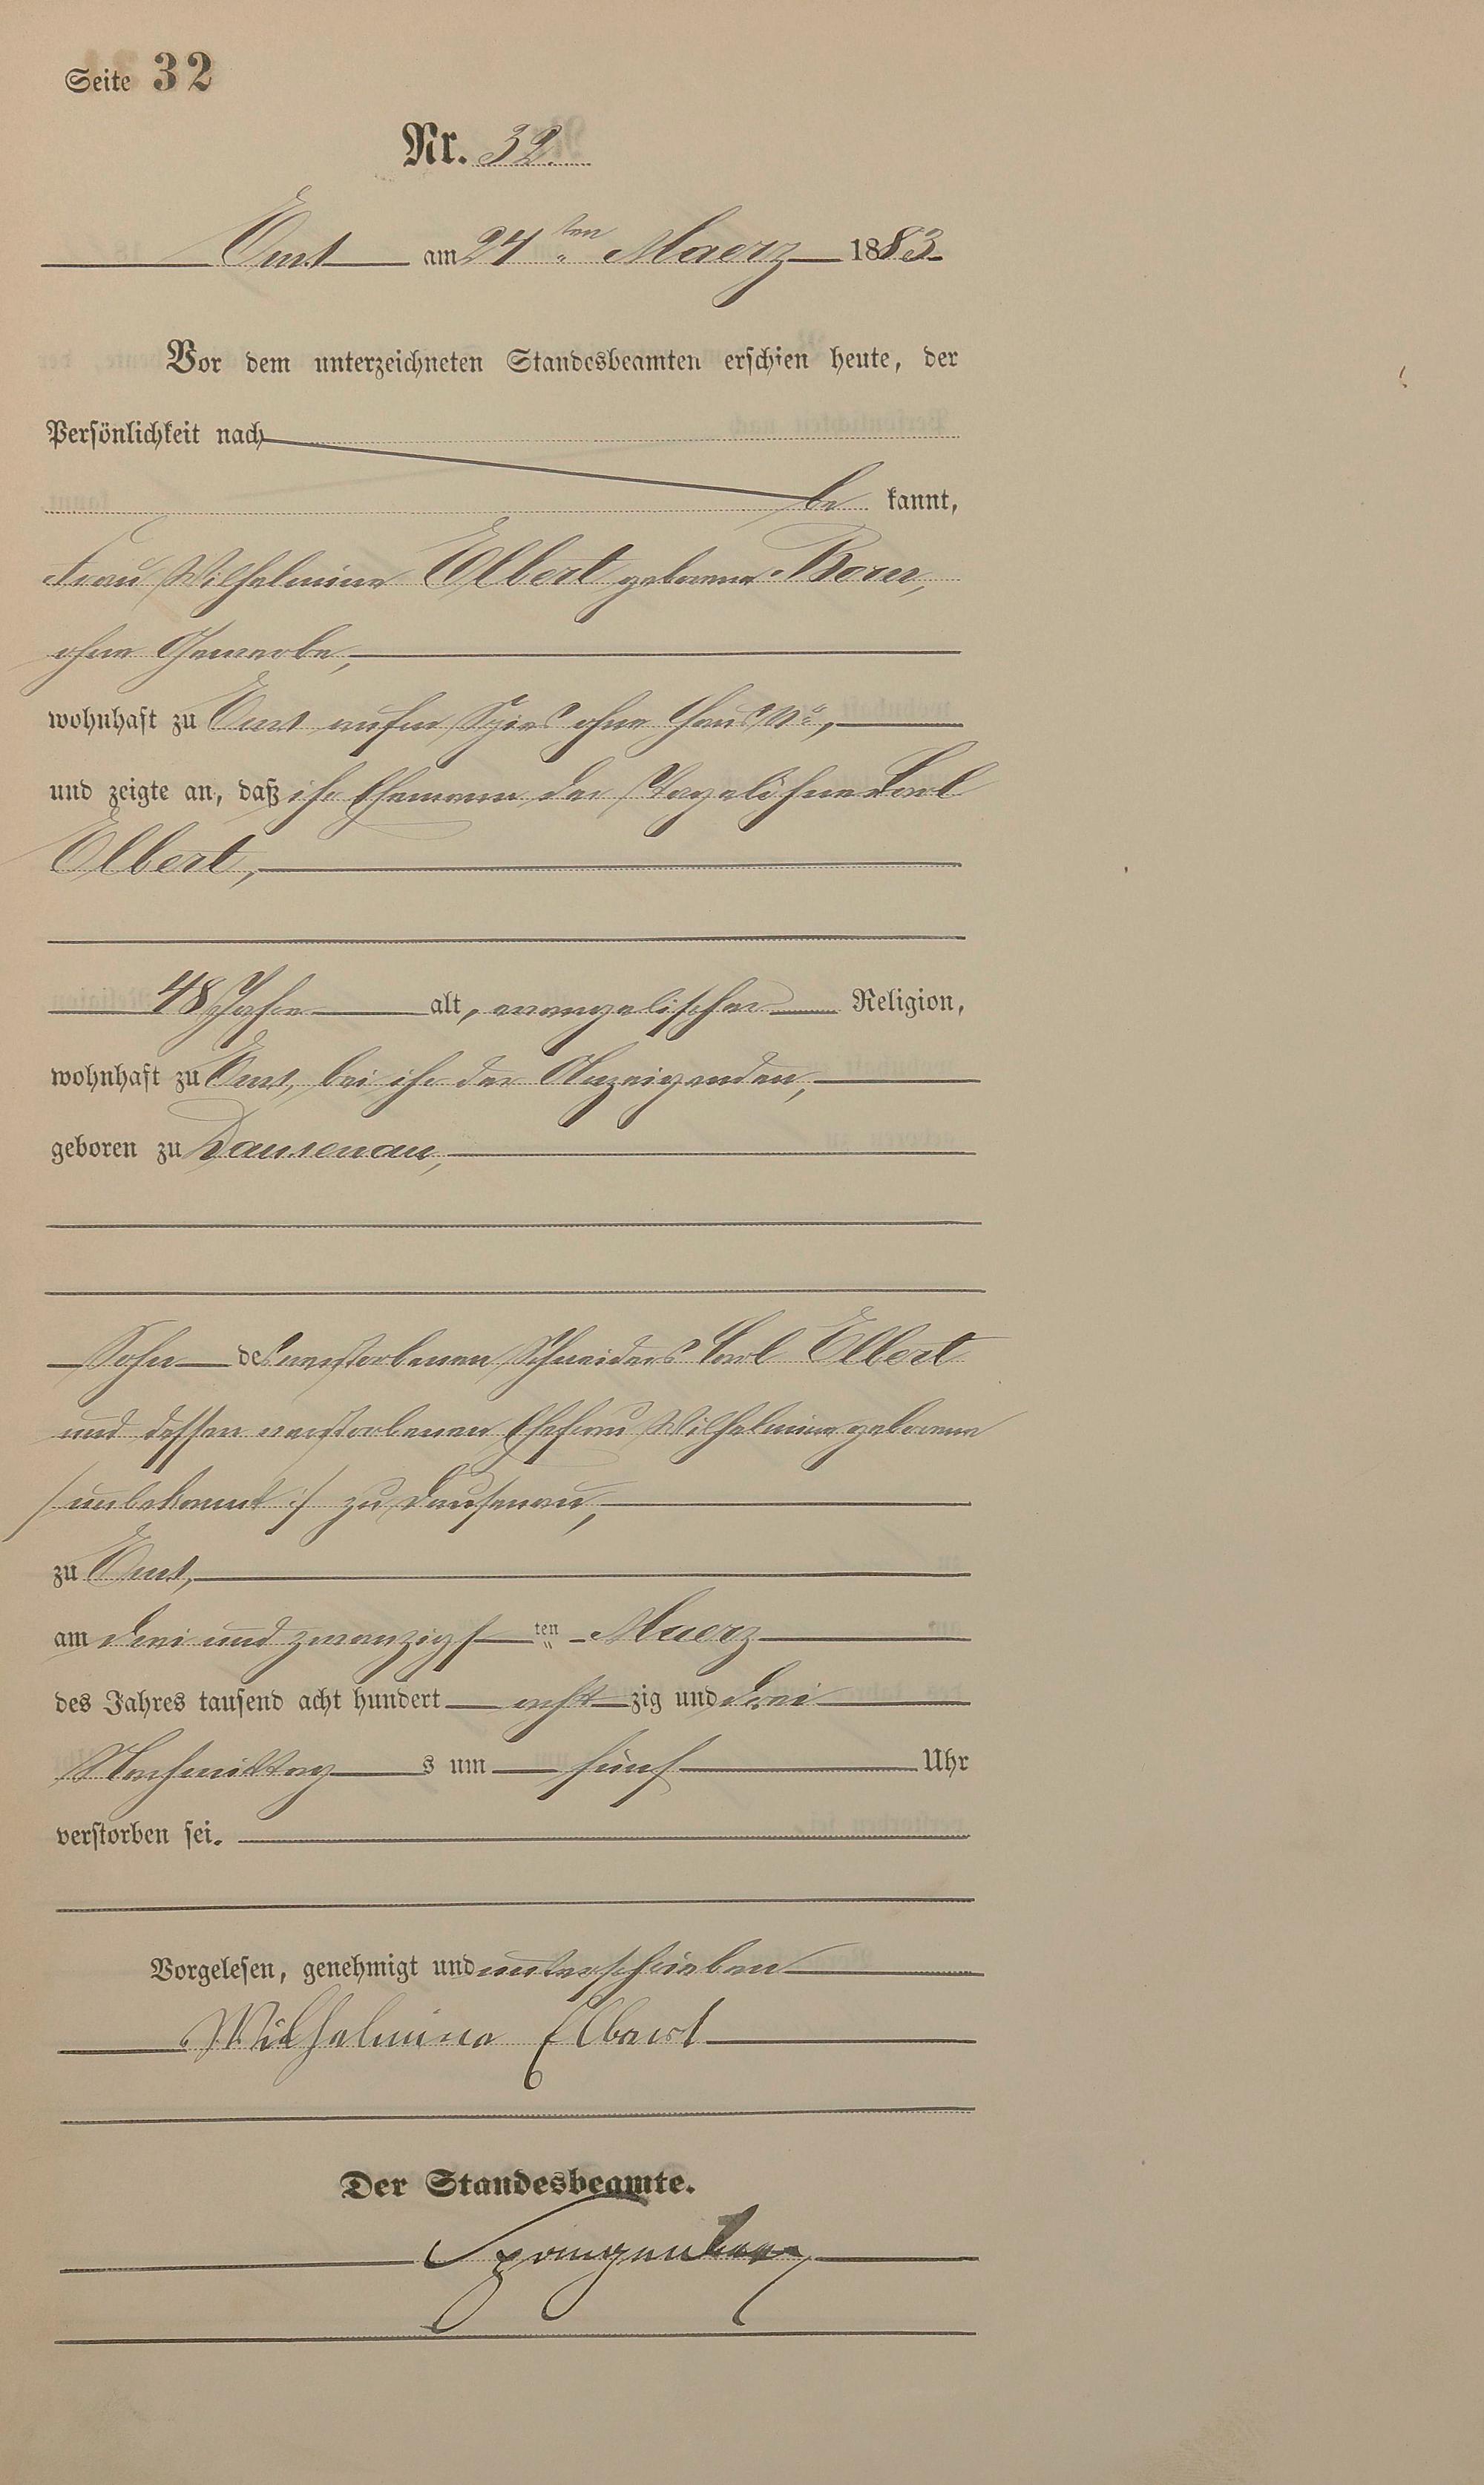 Seite 32
Nr. 32.
Ems am 24ten Maerz 1883
Vor dem unterzeichneten Standesbeamten erschien heute, der
Persönlichkeit nach
be kannt,
Frau Wilhelmine Elbert geborene Born,
ohne Gewerbe,
wohnhaft zu Ems auf'm Spies ohne Haus No,
und zeigte an, daß ihr Ehemann der Tagelöhner Carl
Elbert,
48 Jahre alt, evangelischer Religion,
wohnhaft zu Ems, bei ihr der Anzeigenden,
geboren zu Dausenau,
Sohn des verstorbenen Schneiders Carl Elbert
und dessen verstorbenen Ehefrau Wilhelmine geborene
/unbekannt :/ zu Dausenau,
zu Ems,
am drei und zwanzigsten Maerz
des Jahres tausend acht hundert acht zig und drei
Nachmittags um fünf Uhr
verstorben sei.
Vorgelesen, genehmigt und unterschrieben
Wilhelmine Elbert
Der Standesbeamte.
Spangenberg